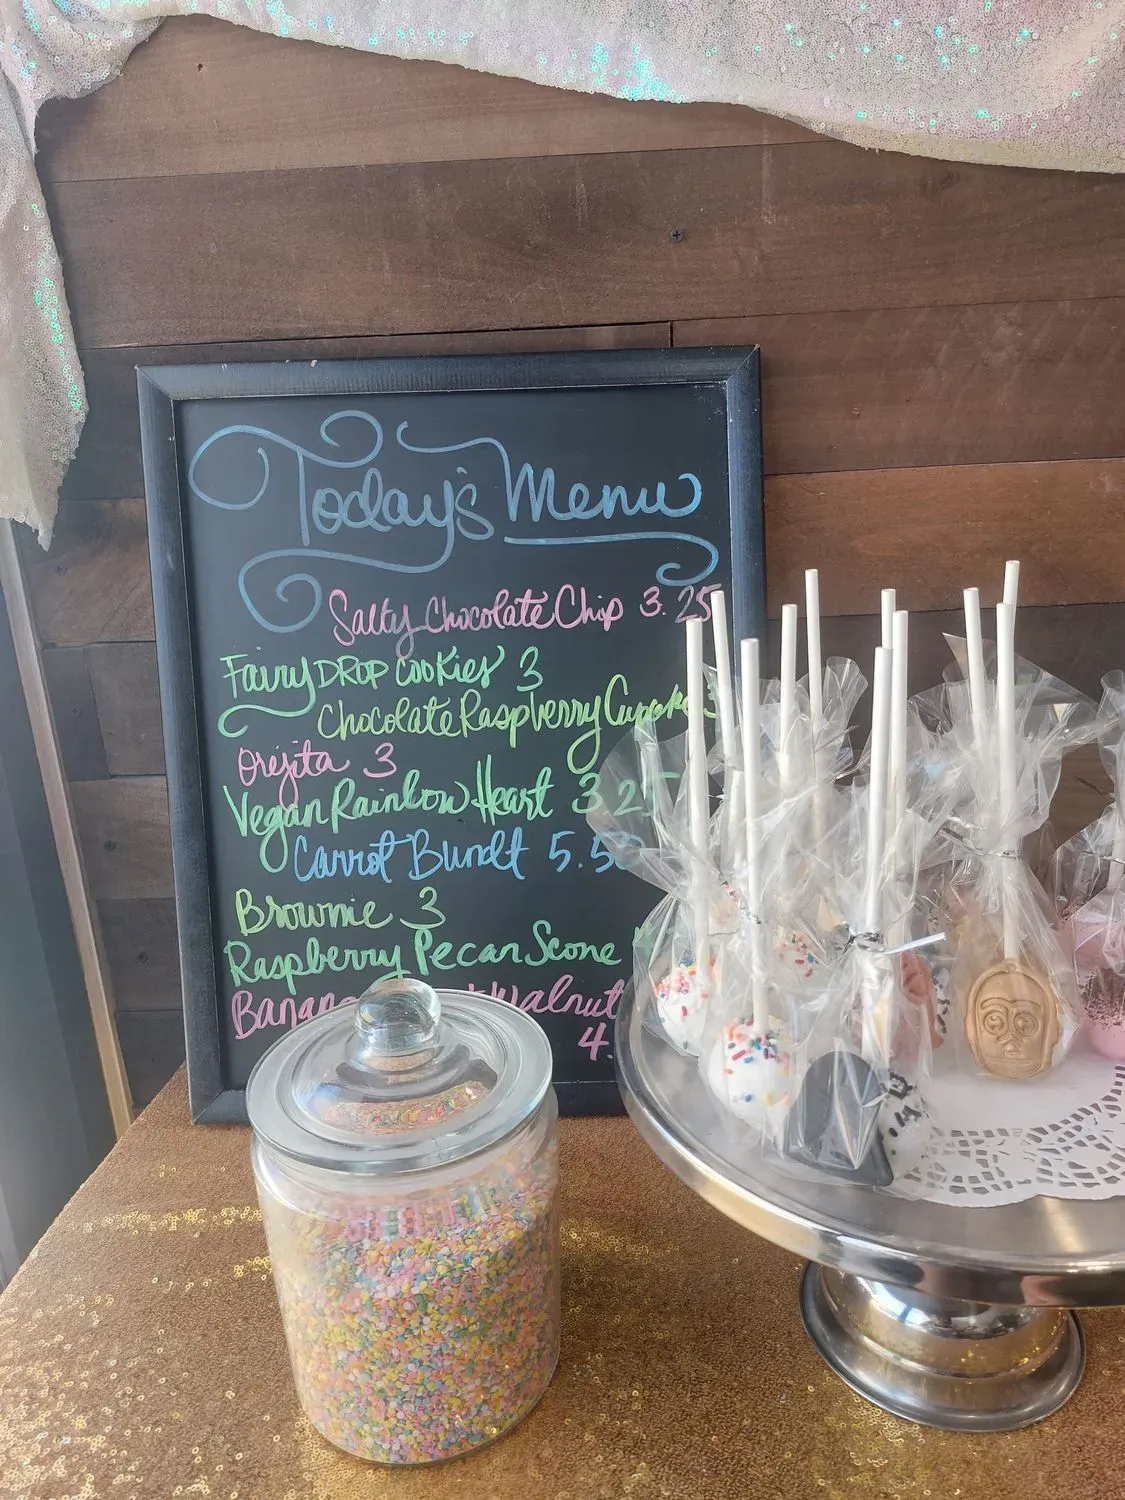 Today's Menu
Salty Chocolate Chip 3.25
Fairy DROP cookies 3
Chocolate Raspberry Cupcake 3
Orejita 3
Vegan Rainbow Heart 3.25
Carrot Bundt 5.50
Brownie 3
Raspberry Pecan Scone
Walnut
4.